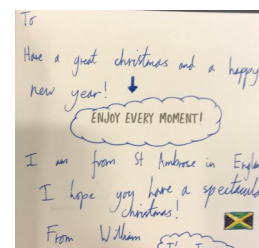 To
Have a great christmas and a happy
new year!
ENJOY EVERY MOMENT!
I am from St Ambrose in
I hope you have a
christmas!
From William